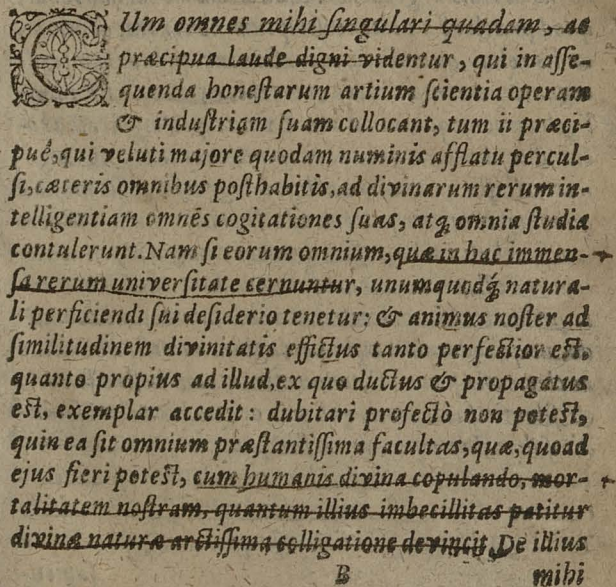 CUm omnes mihi ſingulari quadam, ac
præcipua laude digni videntur, qui in aſſe-
quenda honeſtarum artium ſcientia operam
& induſtriam ſuam collocant, tum ii præci-
puè, qui veluti majore quodam numinis afflatu percul-
ſi, cæteris omnibus poſthabitis, ad divinarum rerum in-
telligentiam omnēs cogitationes ſuas, atq; omnia ſtudia
contulerunt. Nam ſi eorum omnium, quæ in hac immen-
ſa rerum univerſitate cernuntur, unumquodq; natura-
li perficiendi ſui deſiderio tenetur: & animus noſter ad
ſimilitudinem divinitatis effictus tanto perfectior eſt,
quanto propius ad illud, ex quo ductus & propagatus
eſt, exemplar accedit: dubitari profectò non poteſt,
quin ea ſit omnium præſtantiſſima facultas, quæ, quoad
ejus fieri poteſt, cum humanis divina copulando, mor-
talitatem noſtram, quantum illius imbecillitas patitur
divinæ naturæ arctiſſima colligatione devincit. De illius
B mihi